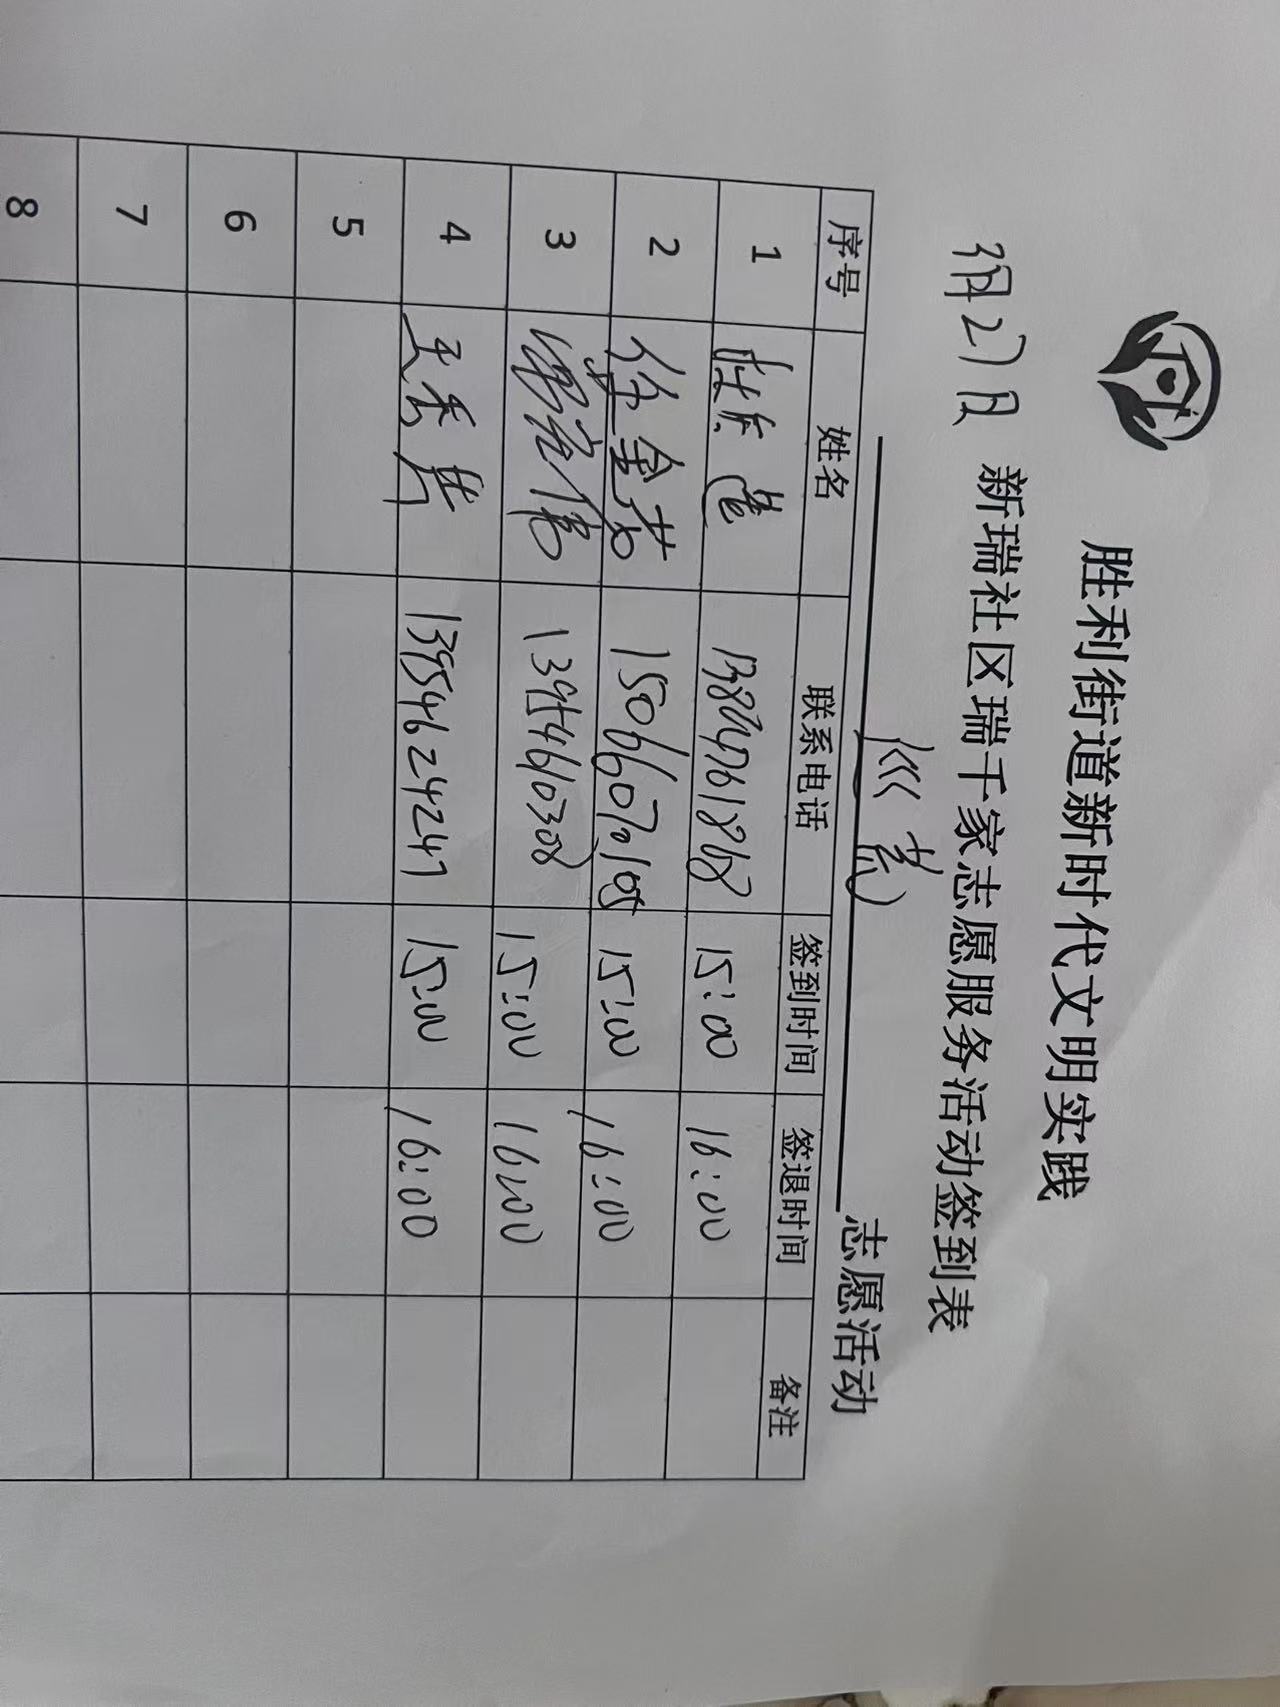 胜利街道新时代文明实践
3月27日 新瑞社区瑞千家志愿服务活动签到表
志愿活动
序号 姓名 联系电话 签到时间 签退时间 备注
1 15:00 16:00
2 徐金芝 15066070108 15:00 16:00
3 13954610308 15:00 16:00
4 王秀 13954624247 15:00 16:00
5
6
7
8